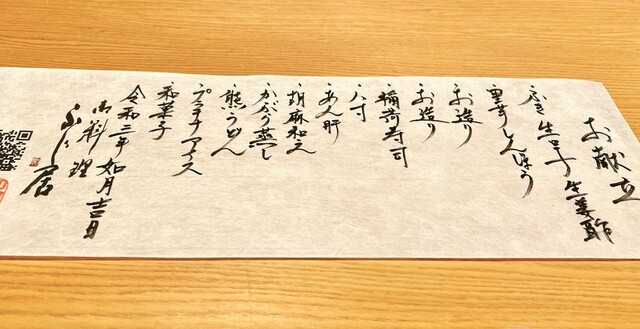 お献立
ふぐ 生口子 生姜酢
里芋しんじょう
・お造り
・お造り
・稲荷寿司
・八寸
・あん肝
・胡麻和え
・かぶら蒸し
・熊うどん
・プラチナアイス
・和菓子
令和三年 如月吉日
御料理 ふじ居